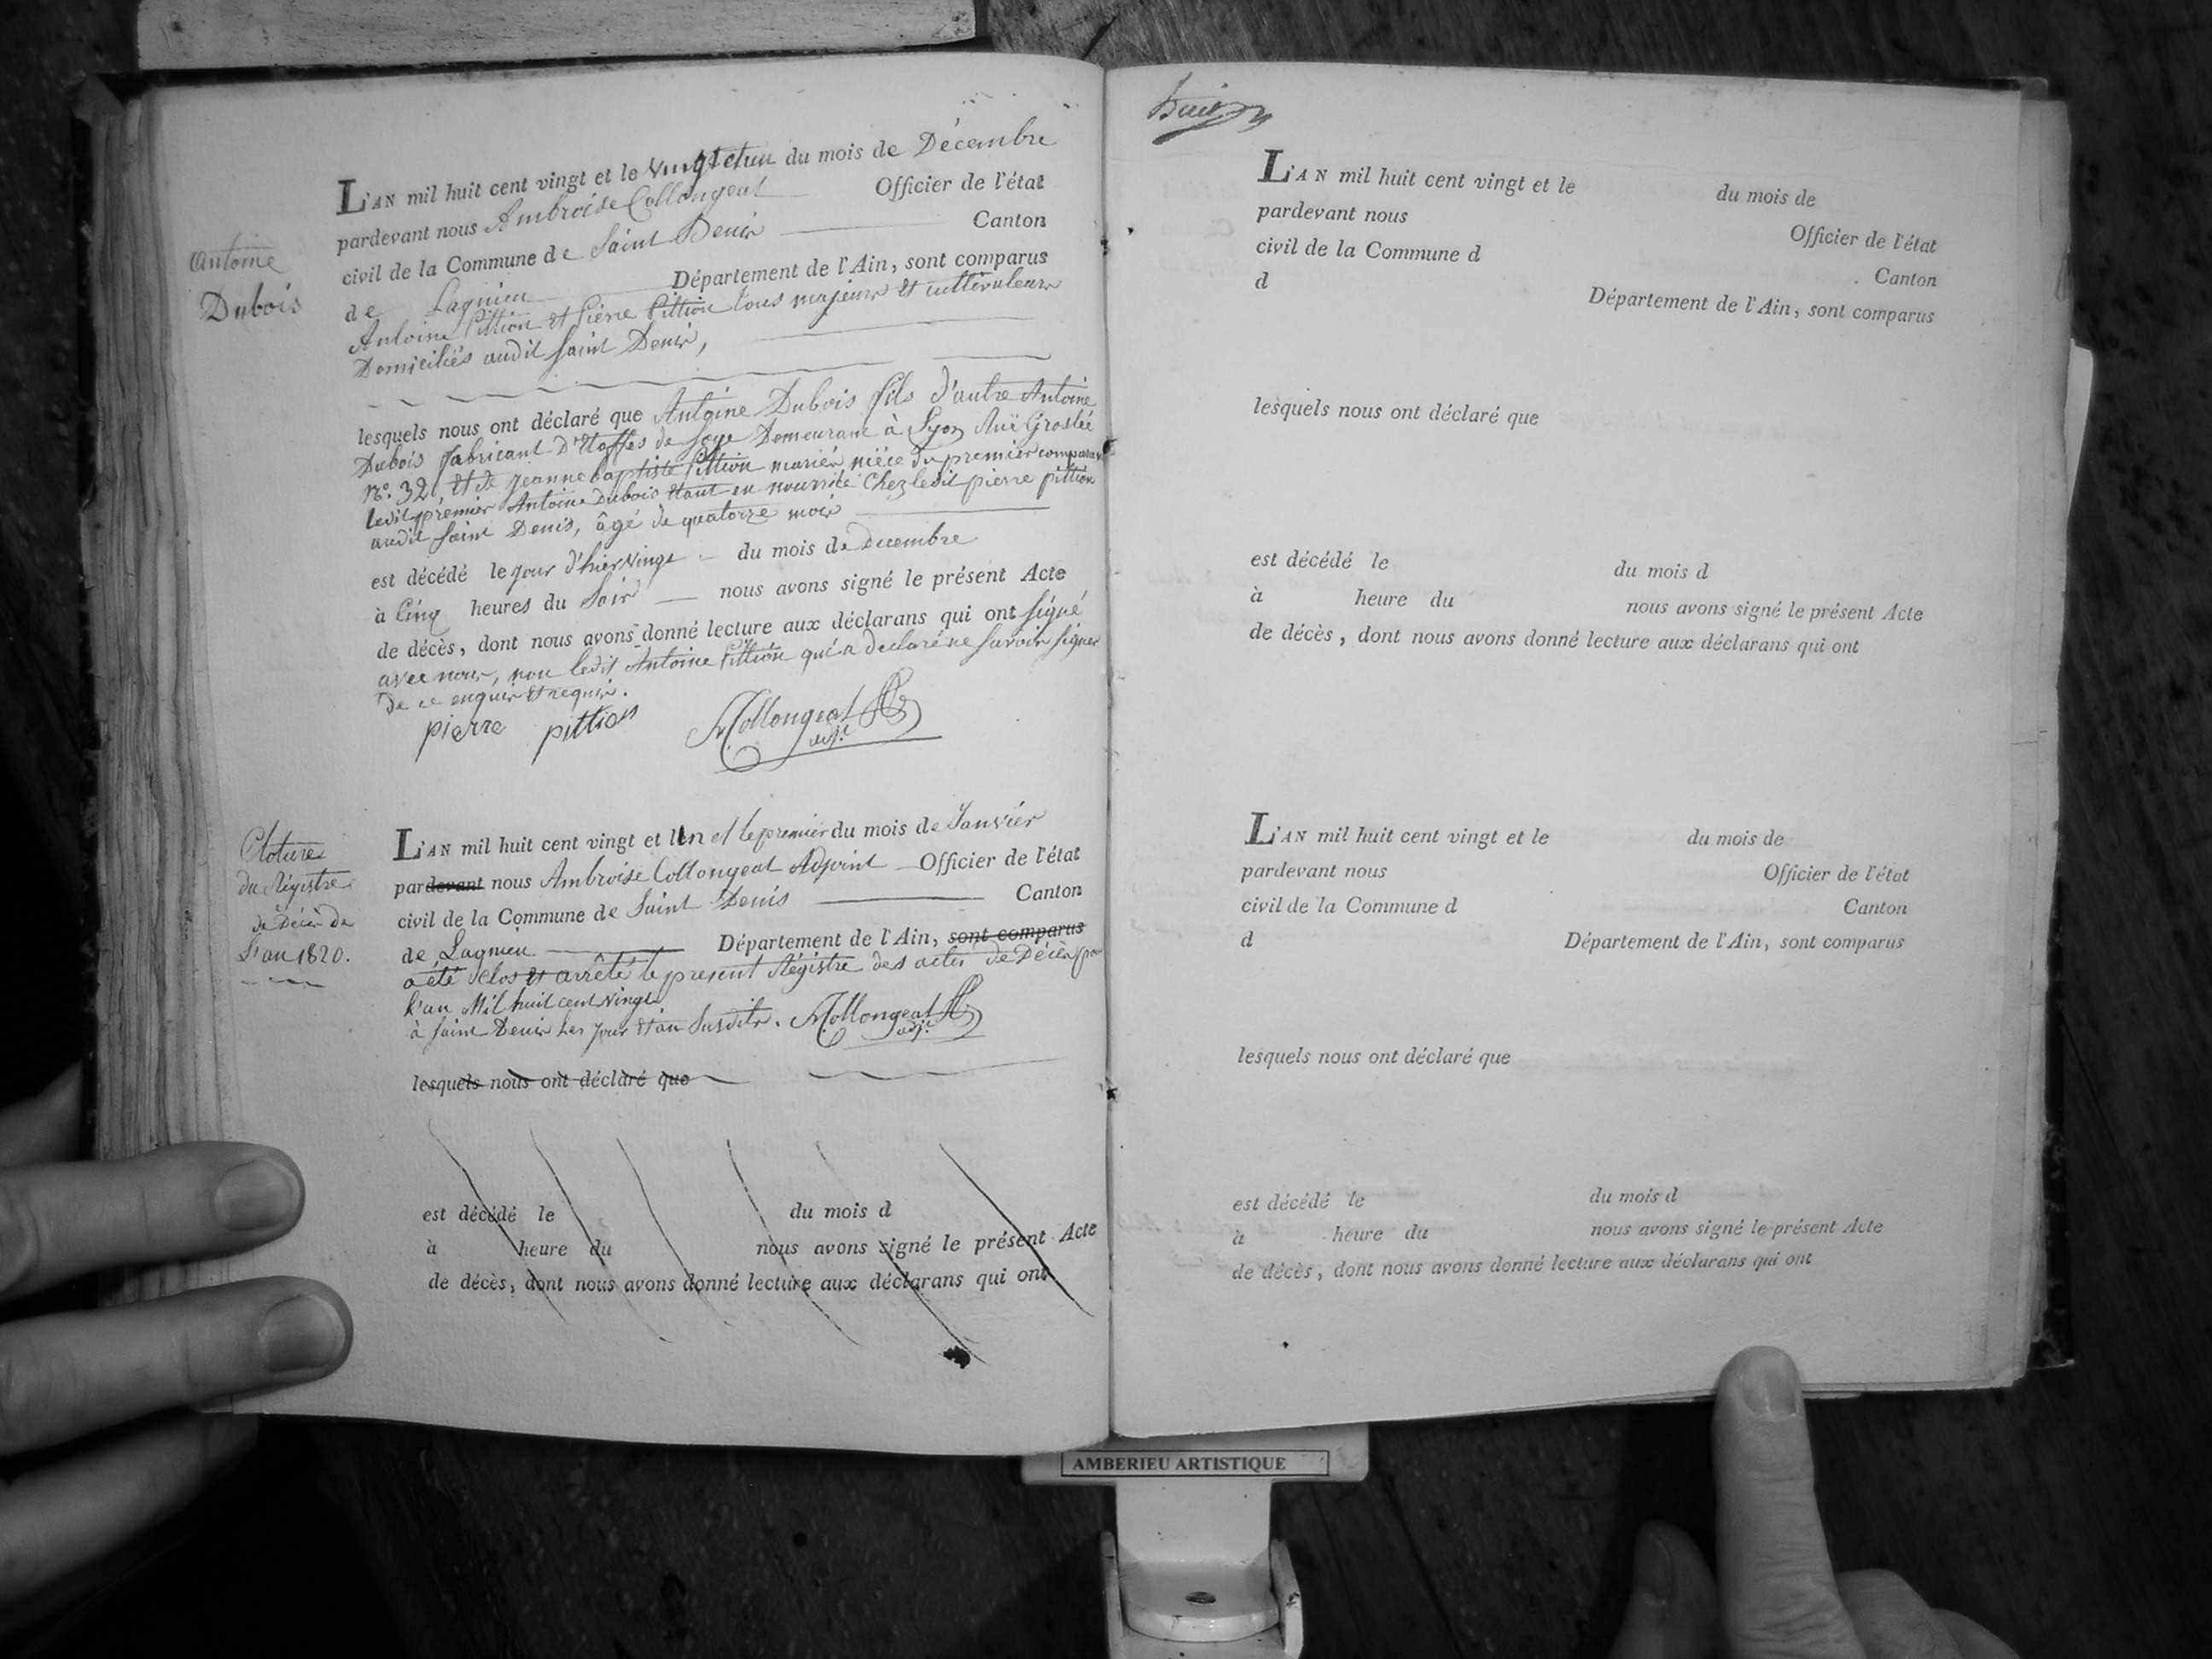 Antoine
Dubois
L'AN mil huit cent vingt et le vingt et un du mois de Décembre
pardevant nous Ambroise Collongeat Officier de l'état
civil de la Commune de Saint Denis Canton
de Lagnieu Département de l'Ain, sont comparus
Antoine Pittion et Pierre Pittion tous majeurs et cultivateurs
Domiciliés audit Saint Denis,
lesquels nous ont déclaré que Antoine Dubois fils d'autre Antoine
Dubois fabricant D'Etoffes de Soye Demeurant à Lyon Ruë Groslée
N.º 32, et de jeanne baptiste Pittion mariés niéce du premier comparant
ledit premier Antoine Dubois étant en nourrice chez ledit pierre pittion
audit Saint Denis, âgé de quatorze mois
est décédé le jour d'hier vingt du mois de Decembre
à Cinq heures du Soir nous avons signé le présent Acte
de décès, dont nous avons donné lecture aux déclarans qui ont signé
avec nous, non ledit Antoine Pittion qui a déclaré ne savoir signer
De ce enquis et requis.
pierre pittion Collongeat
adj.t
Cloture
du Régistre
de Décès de
L'an 1820.
L'AN mil huit cent vingt et Un et le premier du mois de Janvier
pardevant nous Ambroise Collongeat Adjoint Officier de l'état
civil de la Commune de Saint Denis Canton
de Lagnieu Département de l'Ain, sont comparus
a été clos et arrêté le present Régistre des actes de Décès pour
L'an Mil huit cent vingt
à Saint Denis Les jour et an Susdits. Collongeat
adj.t
lesquels nous ont déclaré que
est décédé le du mois d
à heure du nous avons signé le présent Acte
de décès, dont nous avons donné lecture aux déclarans qui ont
L'AN mil huit cent vingt et le du mois de
pardevant nous Officier de l'état
civil de la Commune d Canton
d Département de l'Ain, sont comparus
lesquels nous ont déclaré que
est décédé le du mois d
à heure du nous avons signé le présent Acte
de décès, dont nous avons donné lecture aux déclarans qui ont
L'AN mil huit cent vingt et le du mois de
pardevant nous Officier de l'état
civil de la Commune d Canton
d Département de l'Ain, sont comparus
lesquels nous ont déclaré que
est décédé le du mois d
à heure du nous avons signé le présent Acte
de décès, dont nous avons donné lecture aux déclarans qui ont
AMBERIEU ARTISTIQUE